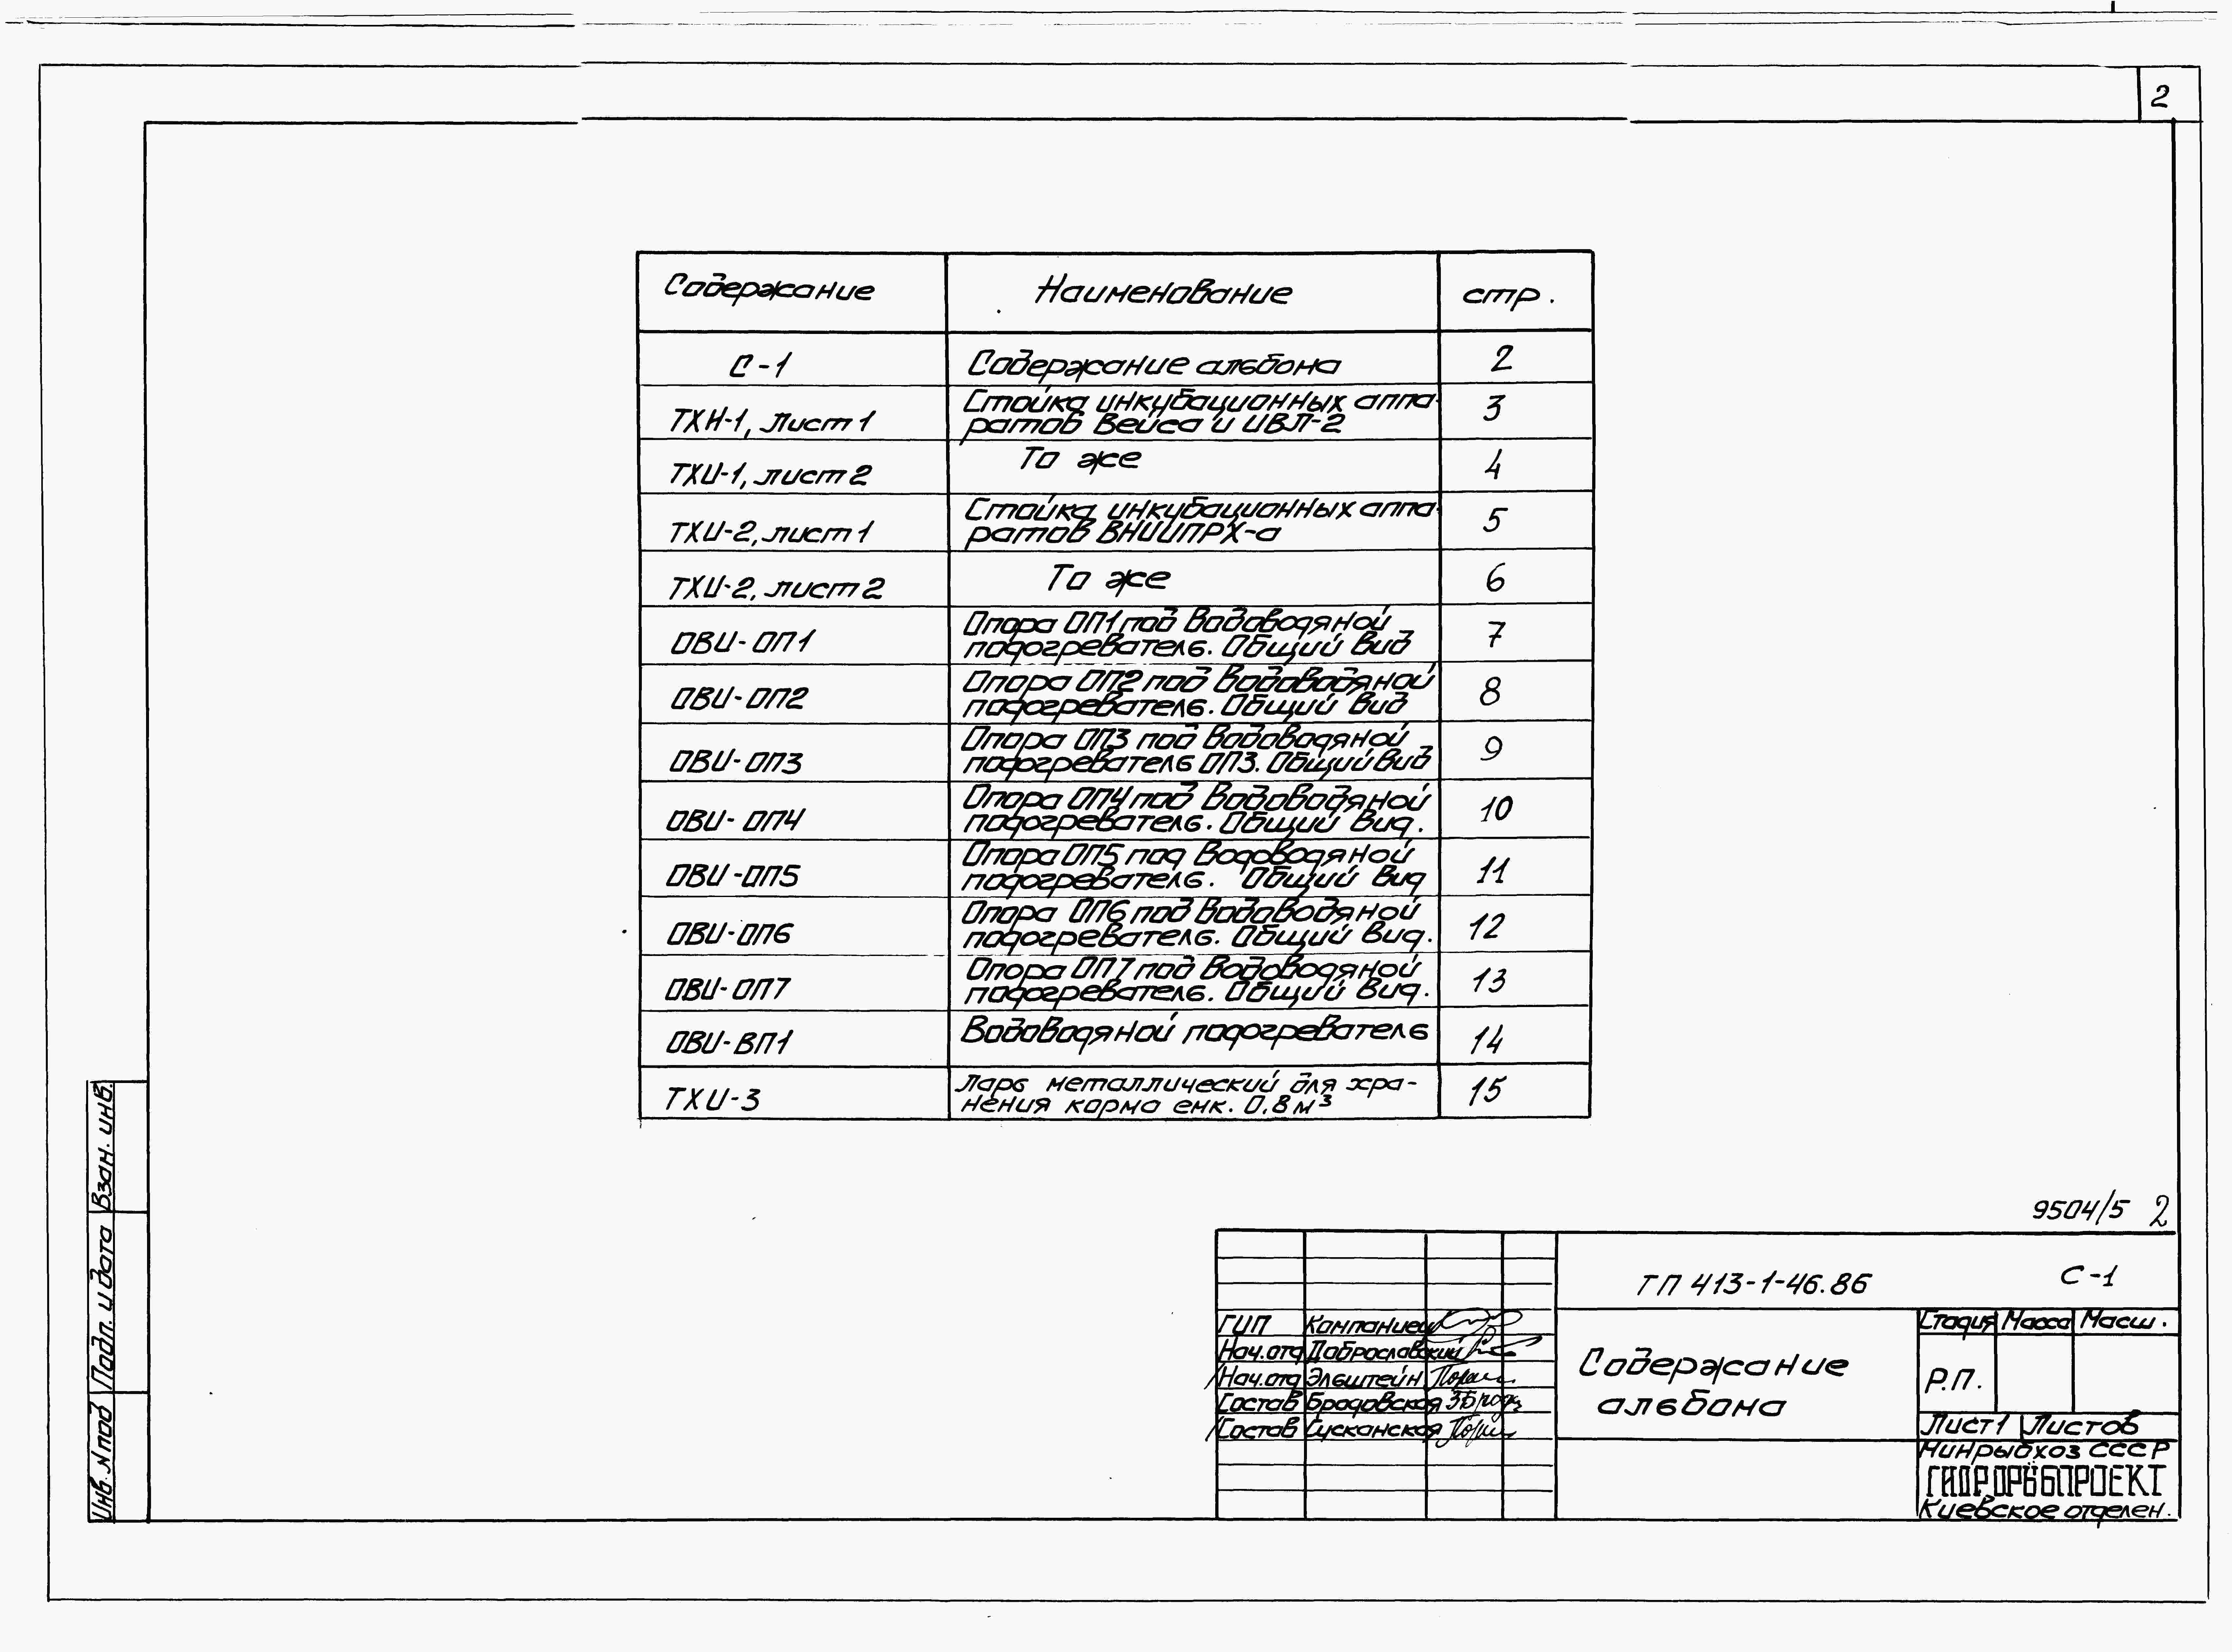 2
Содержание Наименование стр.
С-1 Содержание альбома 2
ТХН-1, лист 1 Стойка инкубационных аппа-
ратов Вейса и ИВЛ-2 3
ТХИ-1, лист 2 То же 4
ТХИ-2, лист 1 Стойка инкубационных аппа-
ратов ВНИИПРХ-а 5
ТХИ-2, лист 2 То же 6
ОВИ-ОП1 Опора ОП1 под водоводяной
подогреватель. Общий вид 7
ОВИ-ОП2 Опора ОП2 под водоводяной
подогреватель. Общий вид 8
ОВИ-ОП3 Опора ОП3 под водоводяной
подогреватель ОП3. Общий вид 9
ОВИ-ОП4 Опора ОП4 под водоводяной
подогреватель. Общий вид. 10
ОВИ-ОП5 Опора ОП5 под водоводяной
подогреватель. Общий вид 11
ОВИ-ОП6 Опора ОП6 под водоводяной
подогреватель. Общий вид. 12
ОВИ-ОП7 Опора ОП7 под водоводяной
подогреватель. Общий вид. 13
ОВИ-ВП1 Водоводяной подогреватель 14
ТХИ-3 Ларь металлический для хра-
нения корма емк. 0,8 м³ 15
Взам. инв.
Подп. и дата
Инв. N под
9504/5 2
ТП 413-1-46.86 С-1
ГИП Компаниец
Нач.отд Доброславский
Нач.отд Эльштейн
Состав Бродовская
Состав Сусканская
Содержание
альбома
Стадия Масса Масш.
Р.П.
Лист 1 Листов
Минрыбхоз СССР
ГИДРОРЫБПРОЕКТ
Киевское отделен.